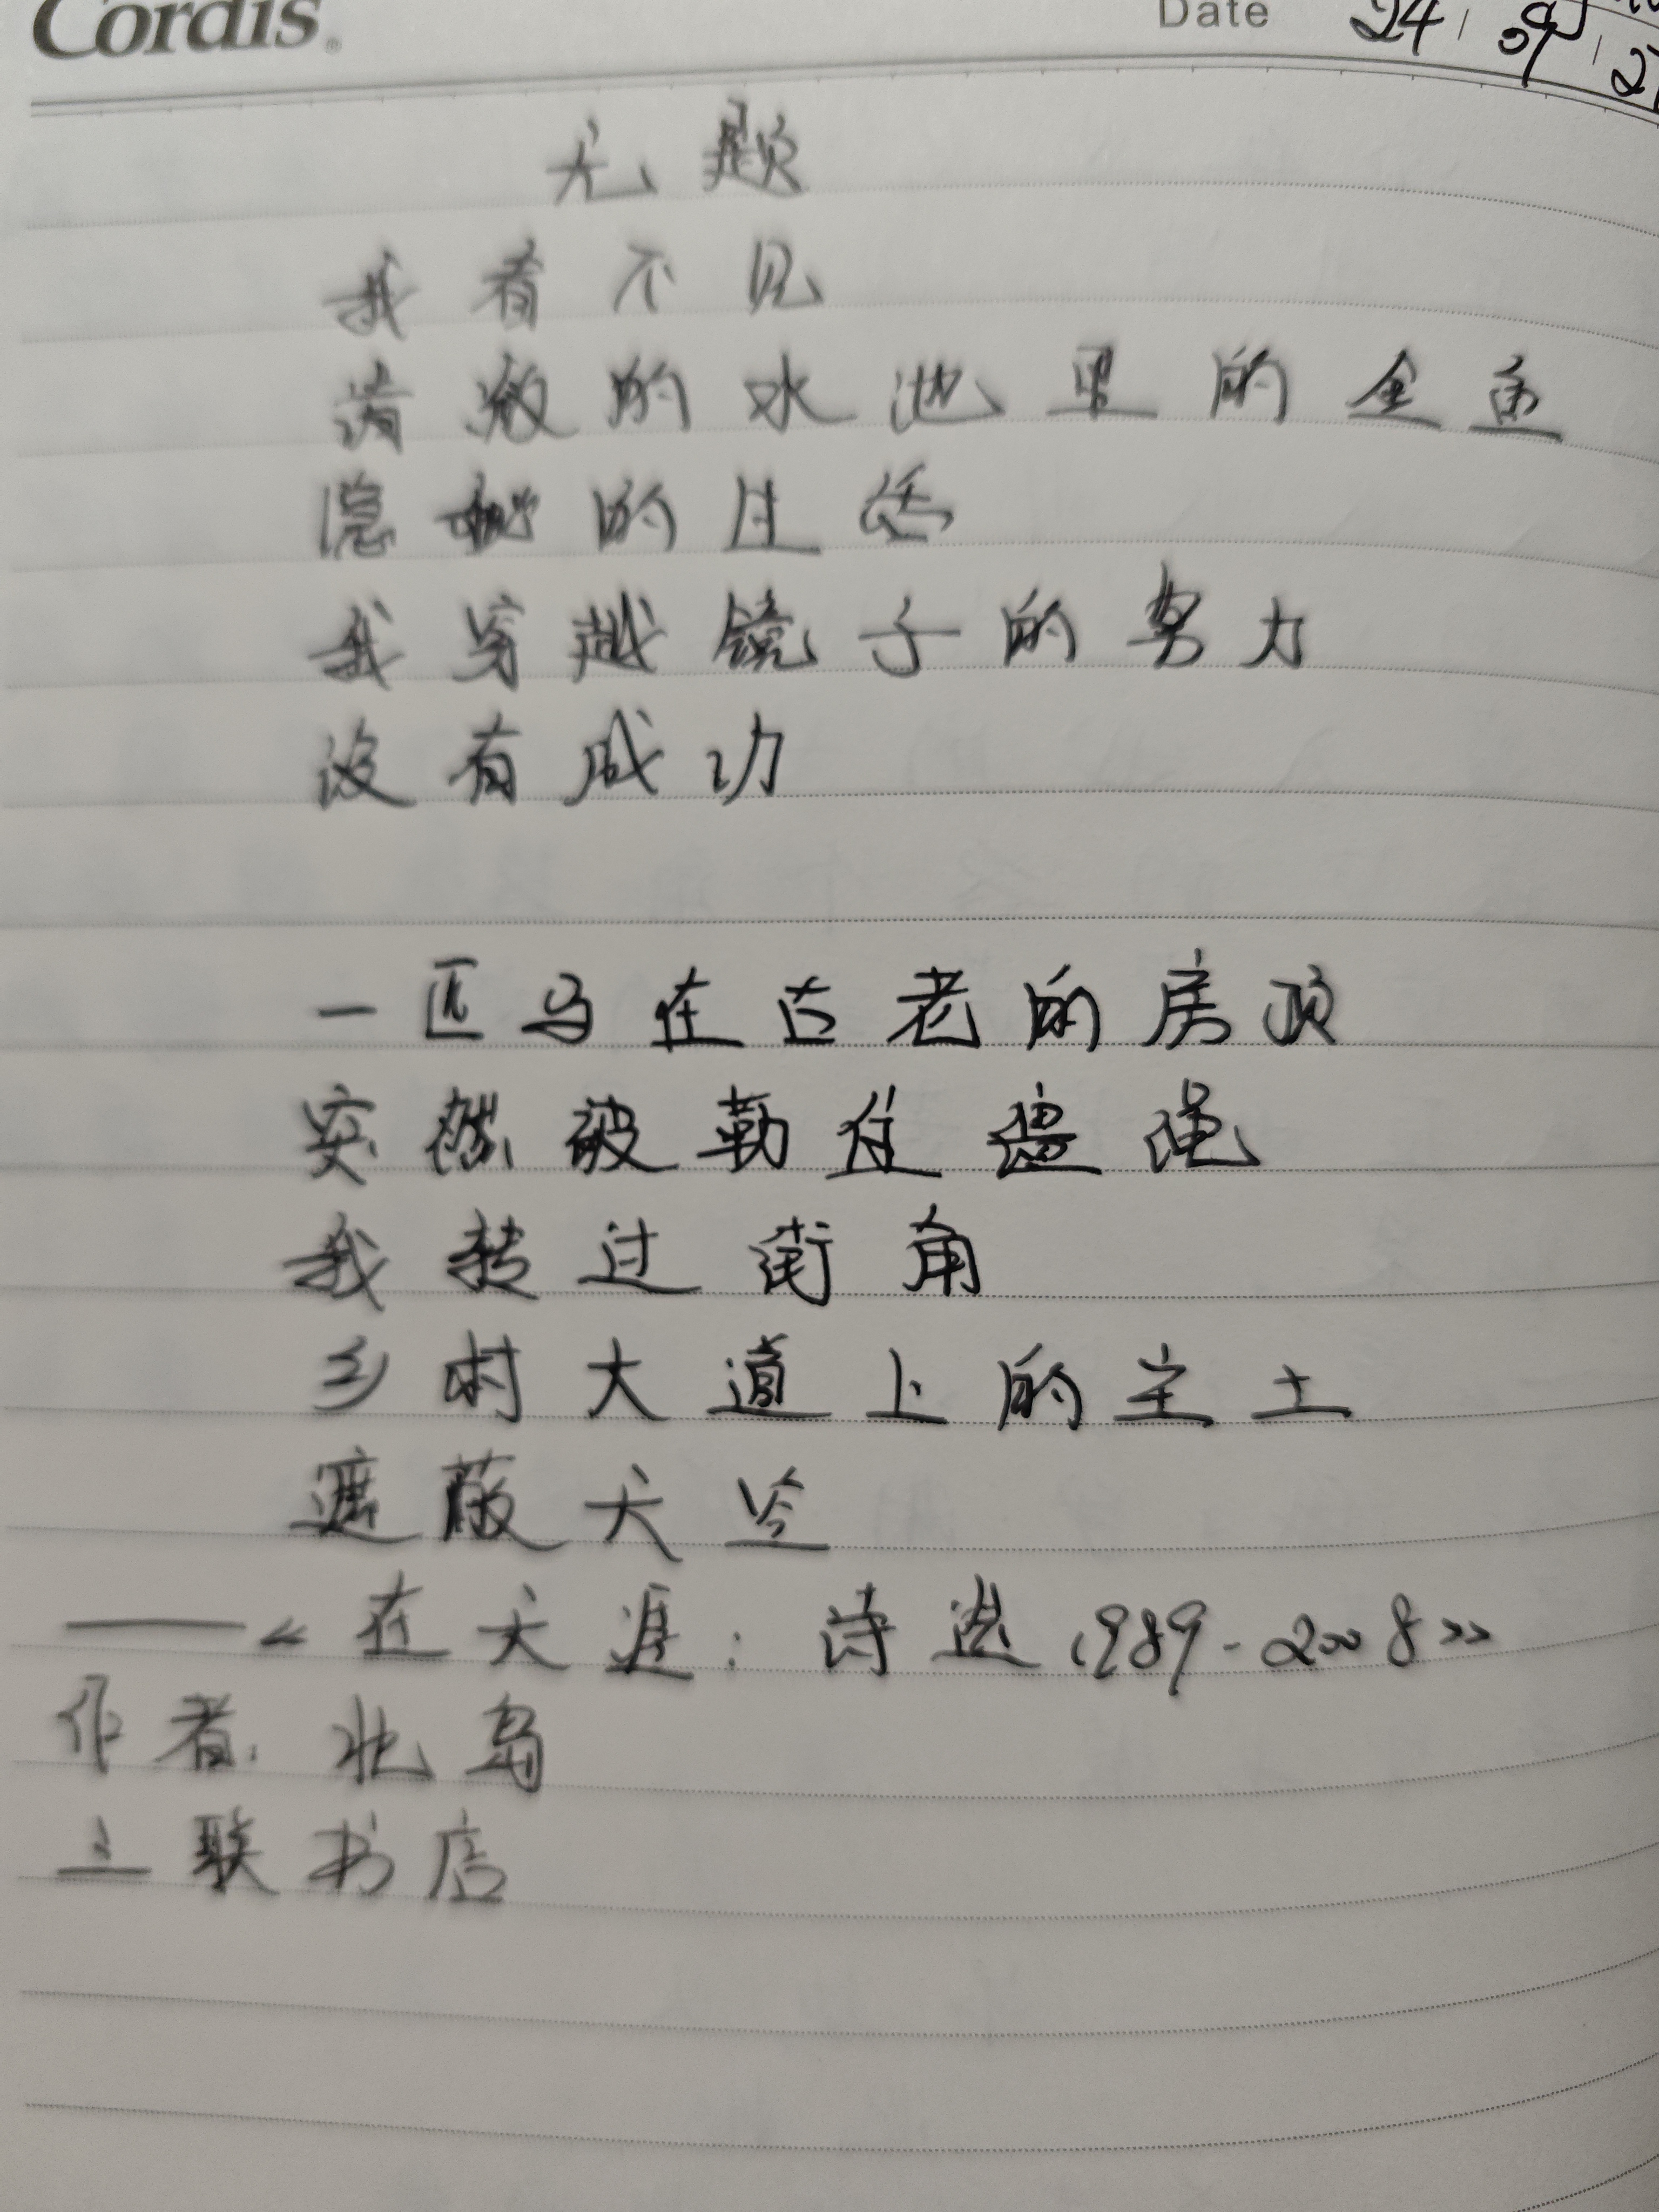 Cordis®
Date 24 / 09 / 2
无题
我看不见
清澈的水池里的金鱼
隐秘的生活
我穿越镜子的努力
没有成功
一匹马在古老的房顶
突然被勒住缰绳
我转过街角
乡村大道上的尘土
遮蔽天空
——《在天涯：诗选1989-2008》
作者：北岛
三联书店